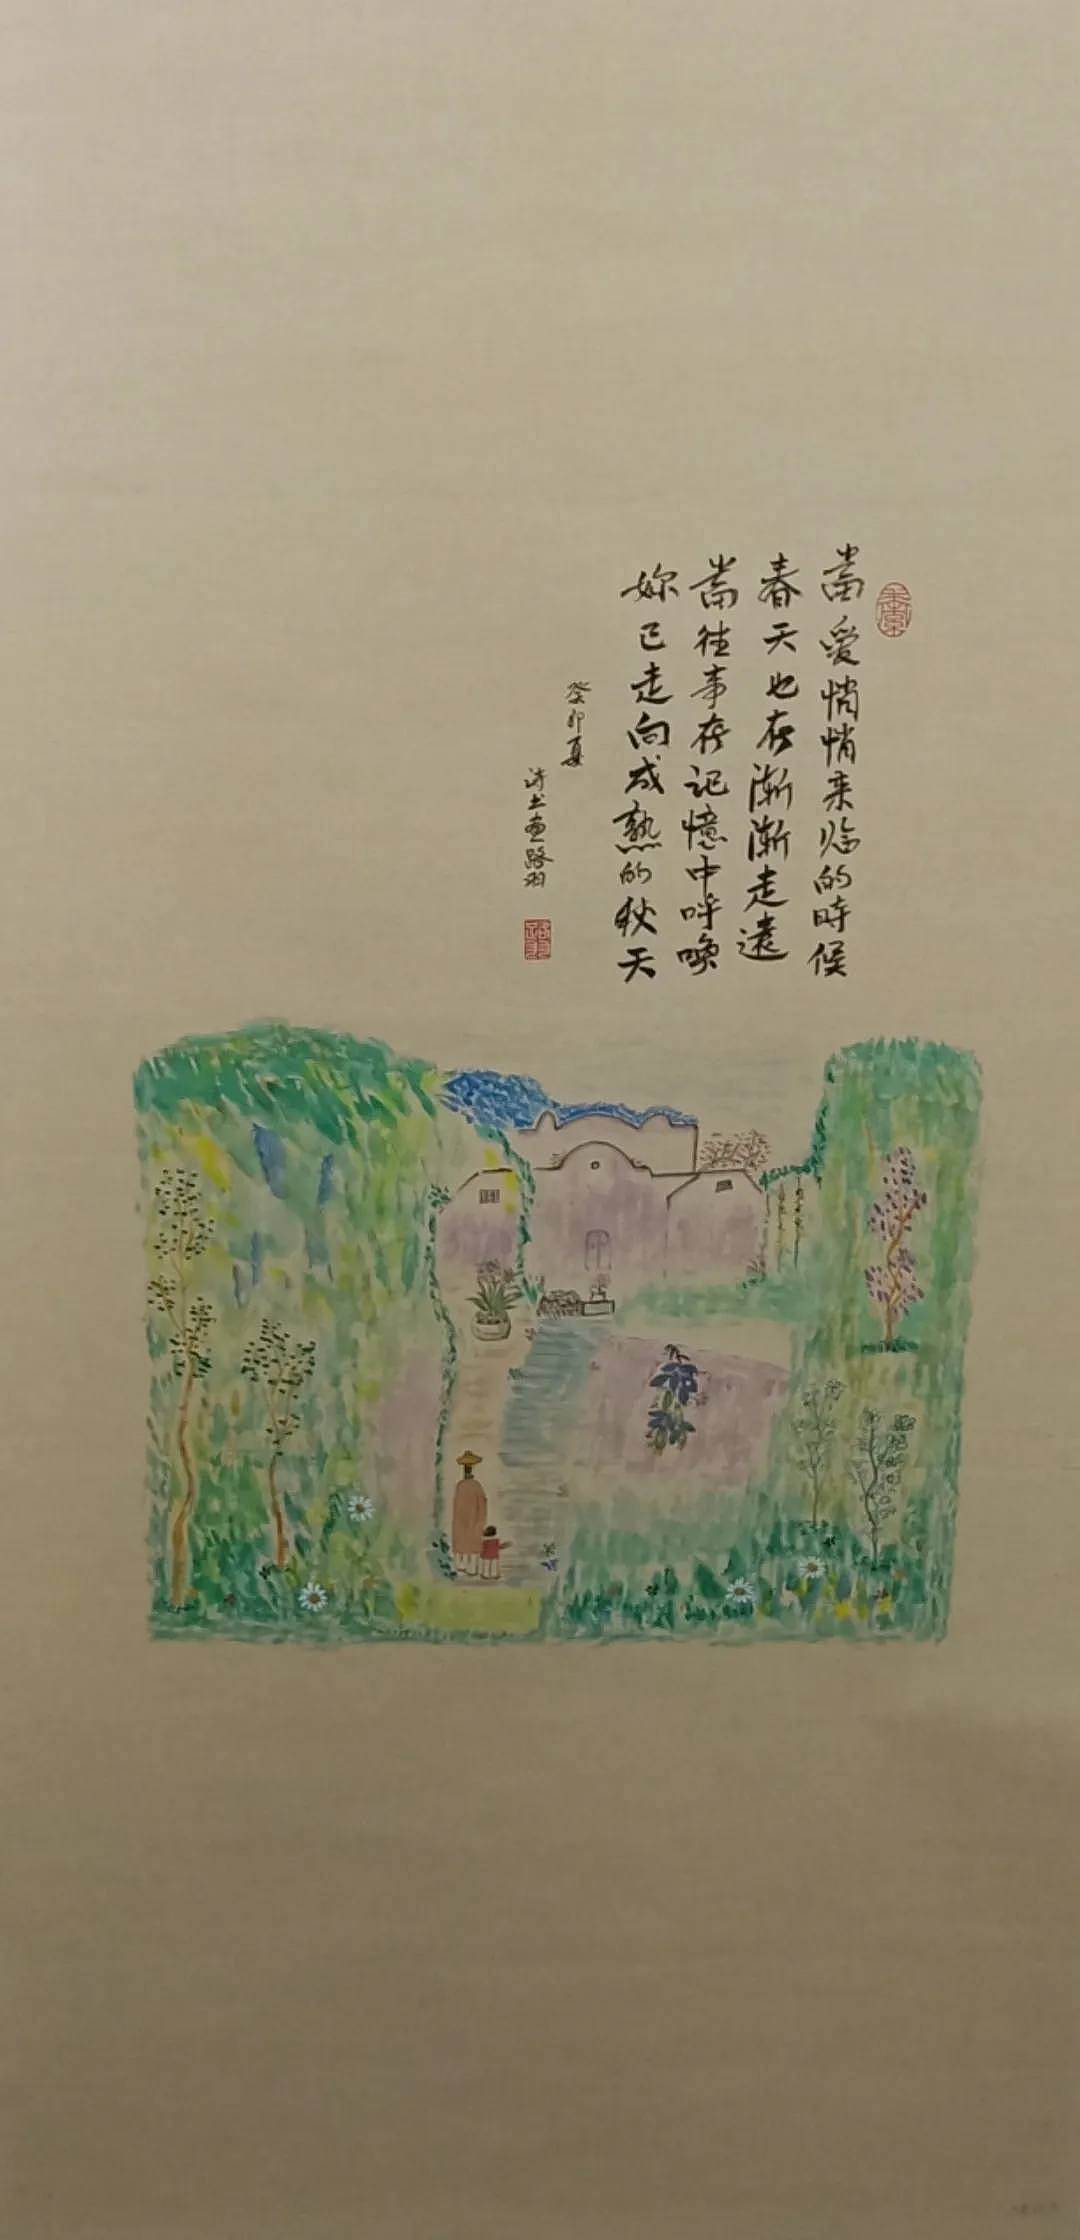 當愛悄悄来临的時候
春天也在漸漸走遠
當往事在記憶中呼喚
妳已走向成熟的秋天
癸卯夏
诗书画路羽
路羽